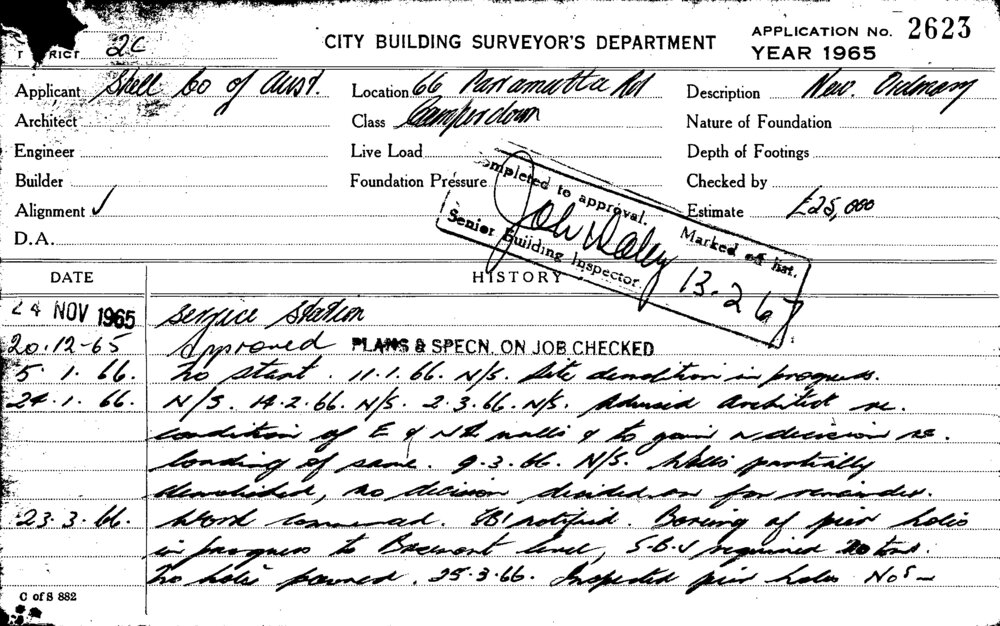 DISTRICT 2C
CITY BUILDING SURVEYOR'S DEPARTMENT
APPLICATION No. 2623
YEAR 1965
Applicant Shell Co of Aust. Location 66 Parramatta Rd Description New. Ordinary
Architect Class Camperdown Nature of Foundation
Engineer Live Load Depth of Footings
Builder Foundation Pressure Checked by
Alignment ✓ Estimate £25,000
D.A.
Completed to approval. Marked off list.
Senior Building Inspector. 13.2.67
DATE HISTORY
24 NOV 1965 Service Station
20.12-65 Approved PLANS & SPECN. ON JOB CHECKED
5.1.66. No start. 11.1.66. N/S. Site demolition in progress.
24.1.66. N/S. 14.2.66. N/S. 2.3.66. N/S. Advised architect re.
condition of E & Nth walls & to gain a decision re.
loading of same. 9.3.66. N/S. Walls partially
demolished, no decision decided on for remainder.
23.3.66. Work commenced. notified. Boring of pier holes
in progress to Basement level, required 20 tons.
No holes poured. 25.3.66. Inspected pier holes Nos –
C of S 882